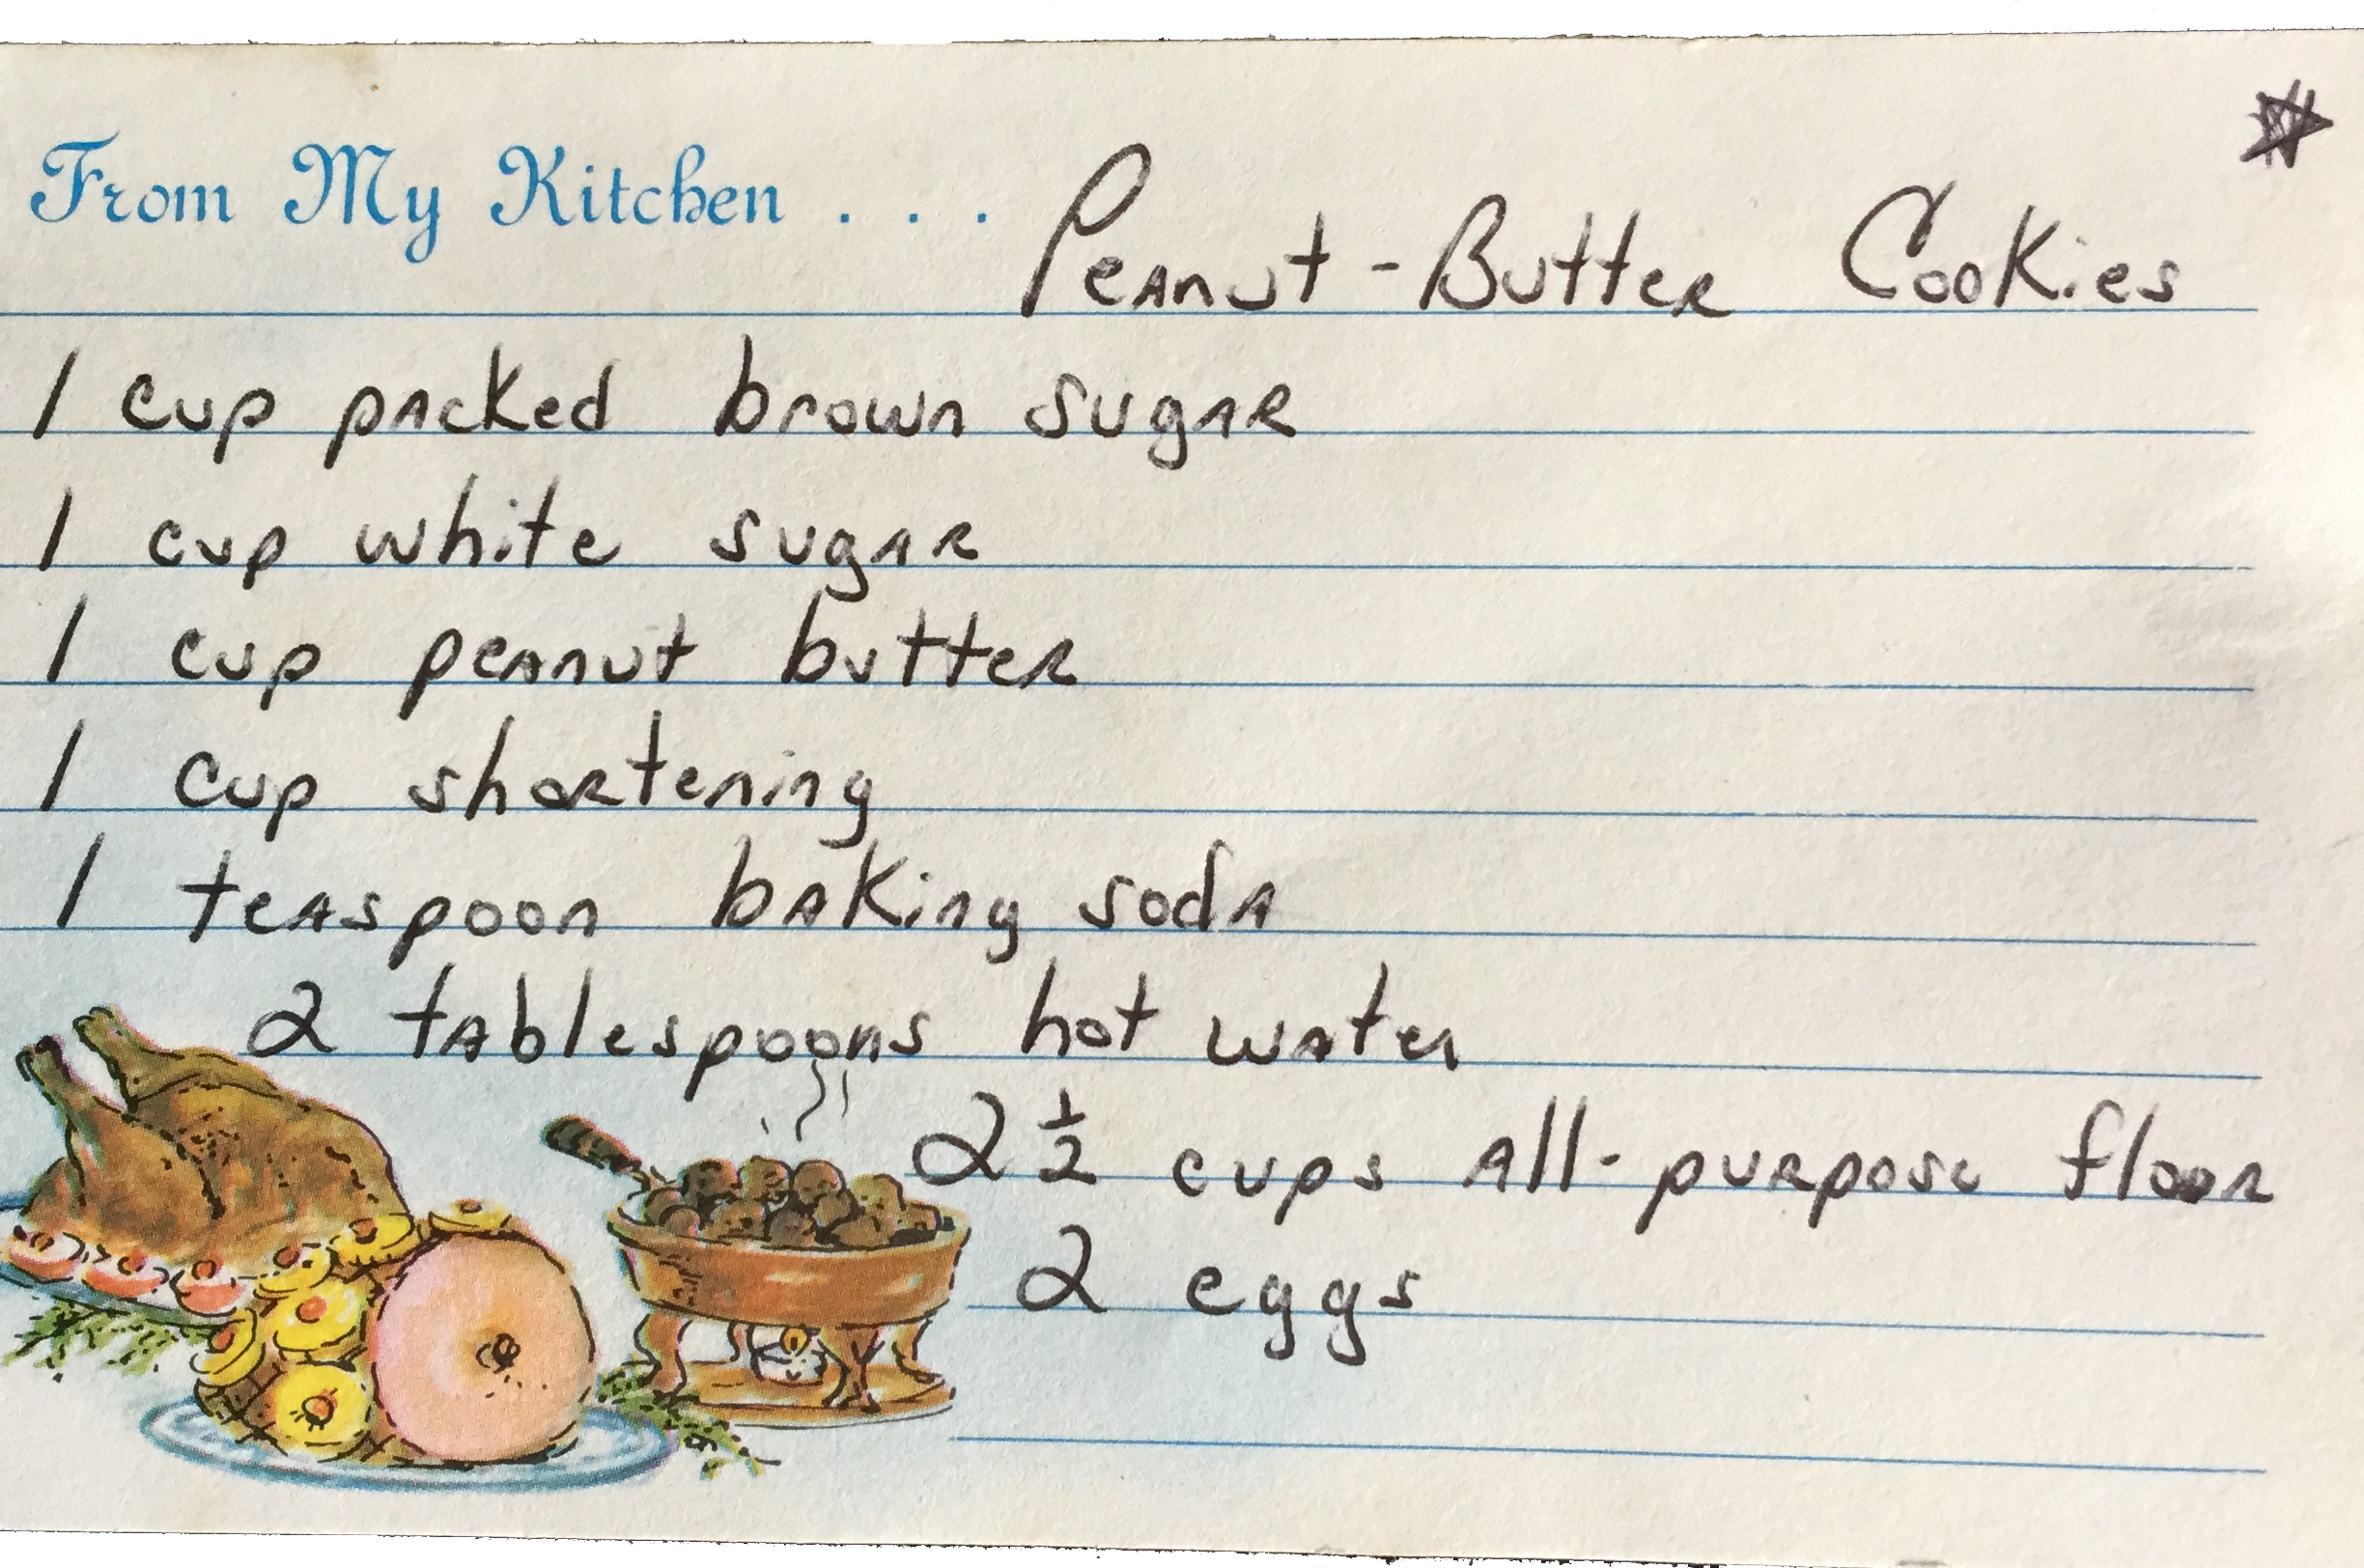 From My Kitchen . . . Peanut-Butter Cookies
1 cup packed brown sugar
1 cup white sugar
1 cup peanut butter
1 cup shortening
1 teaspoon baking soda
2 tablespoons hot water
2 1/2 cups all-purpose floor
2 eggs